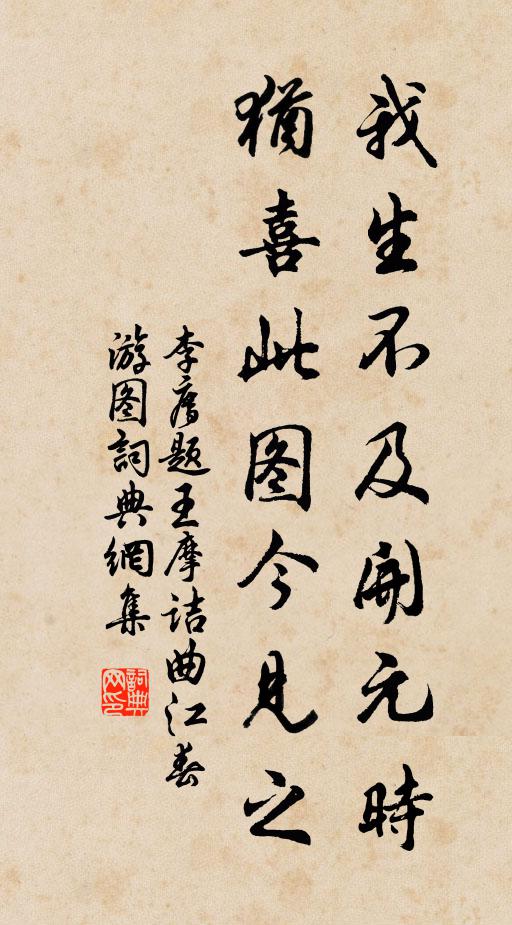 我生不及開元時
猶喜此图今見之
李題王摩詰曲江春
游图詞典網集
詞典
网印